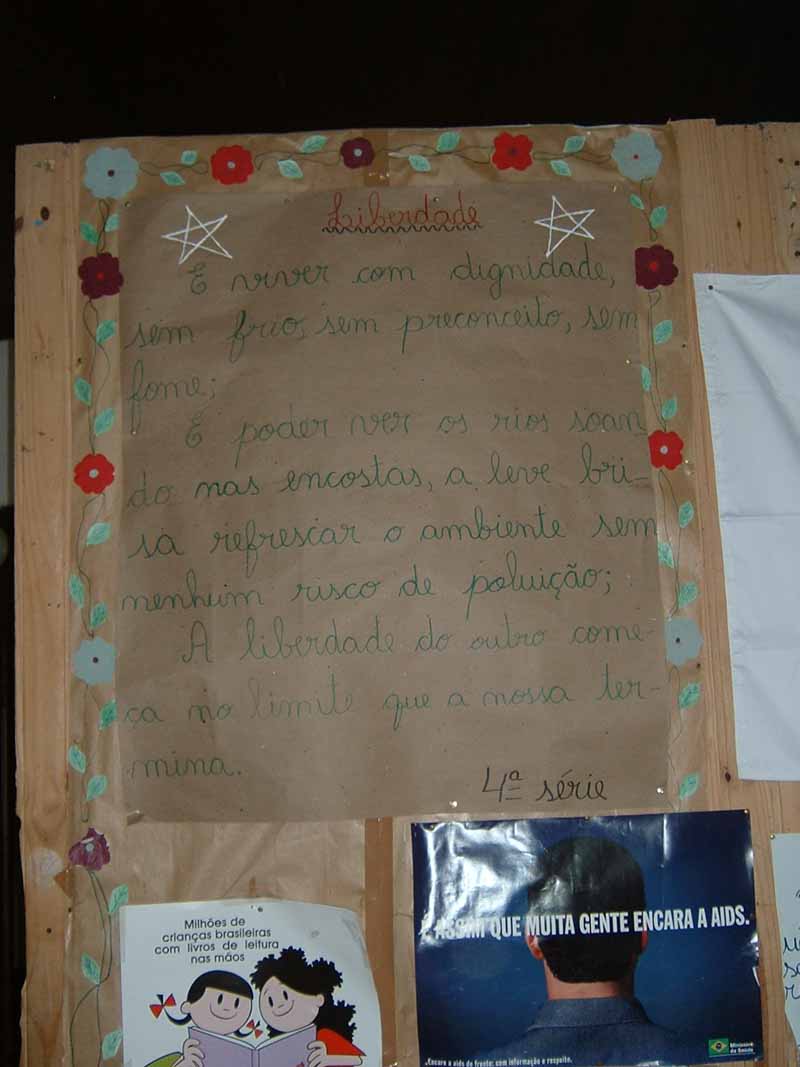 Liberdade
É viver com dignidade,
sem frio, sem preconceito, sem
fome;
É poder ver os rios soan
do nas encostas, a leve bri-
sa refrescar o ambiente sem
nenhum risco de poluição;
A liberdade do outro come-
ça no limite que a nossa ter-
mina.
4ª série
Milhões de
crianças brasileiras
com livros de leitura
nas mãos
É ASSIM QUE MUITA GENTE ENCARA A AIDS.
Encare a aids de frente: com informação e respeito.
Ministério
da Saúde